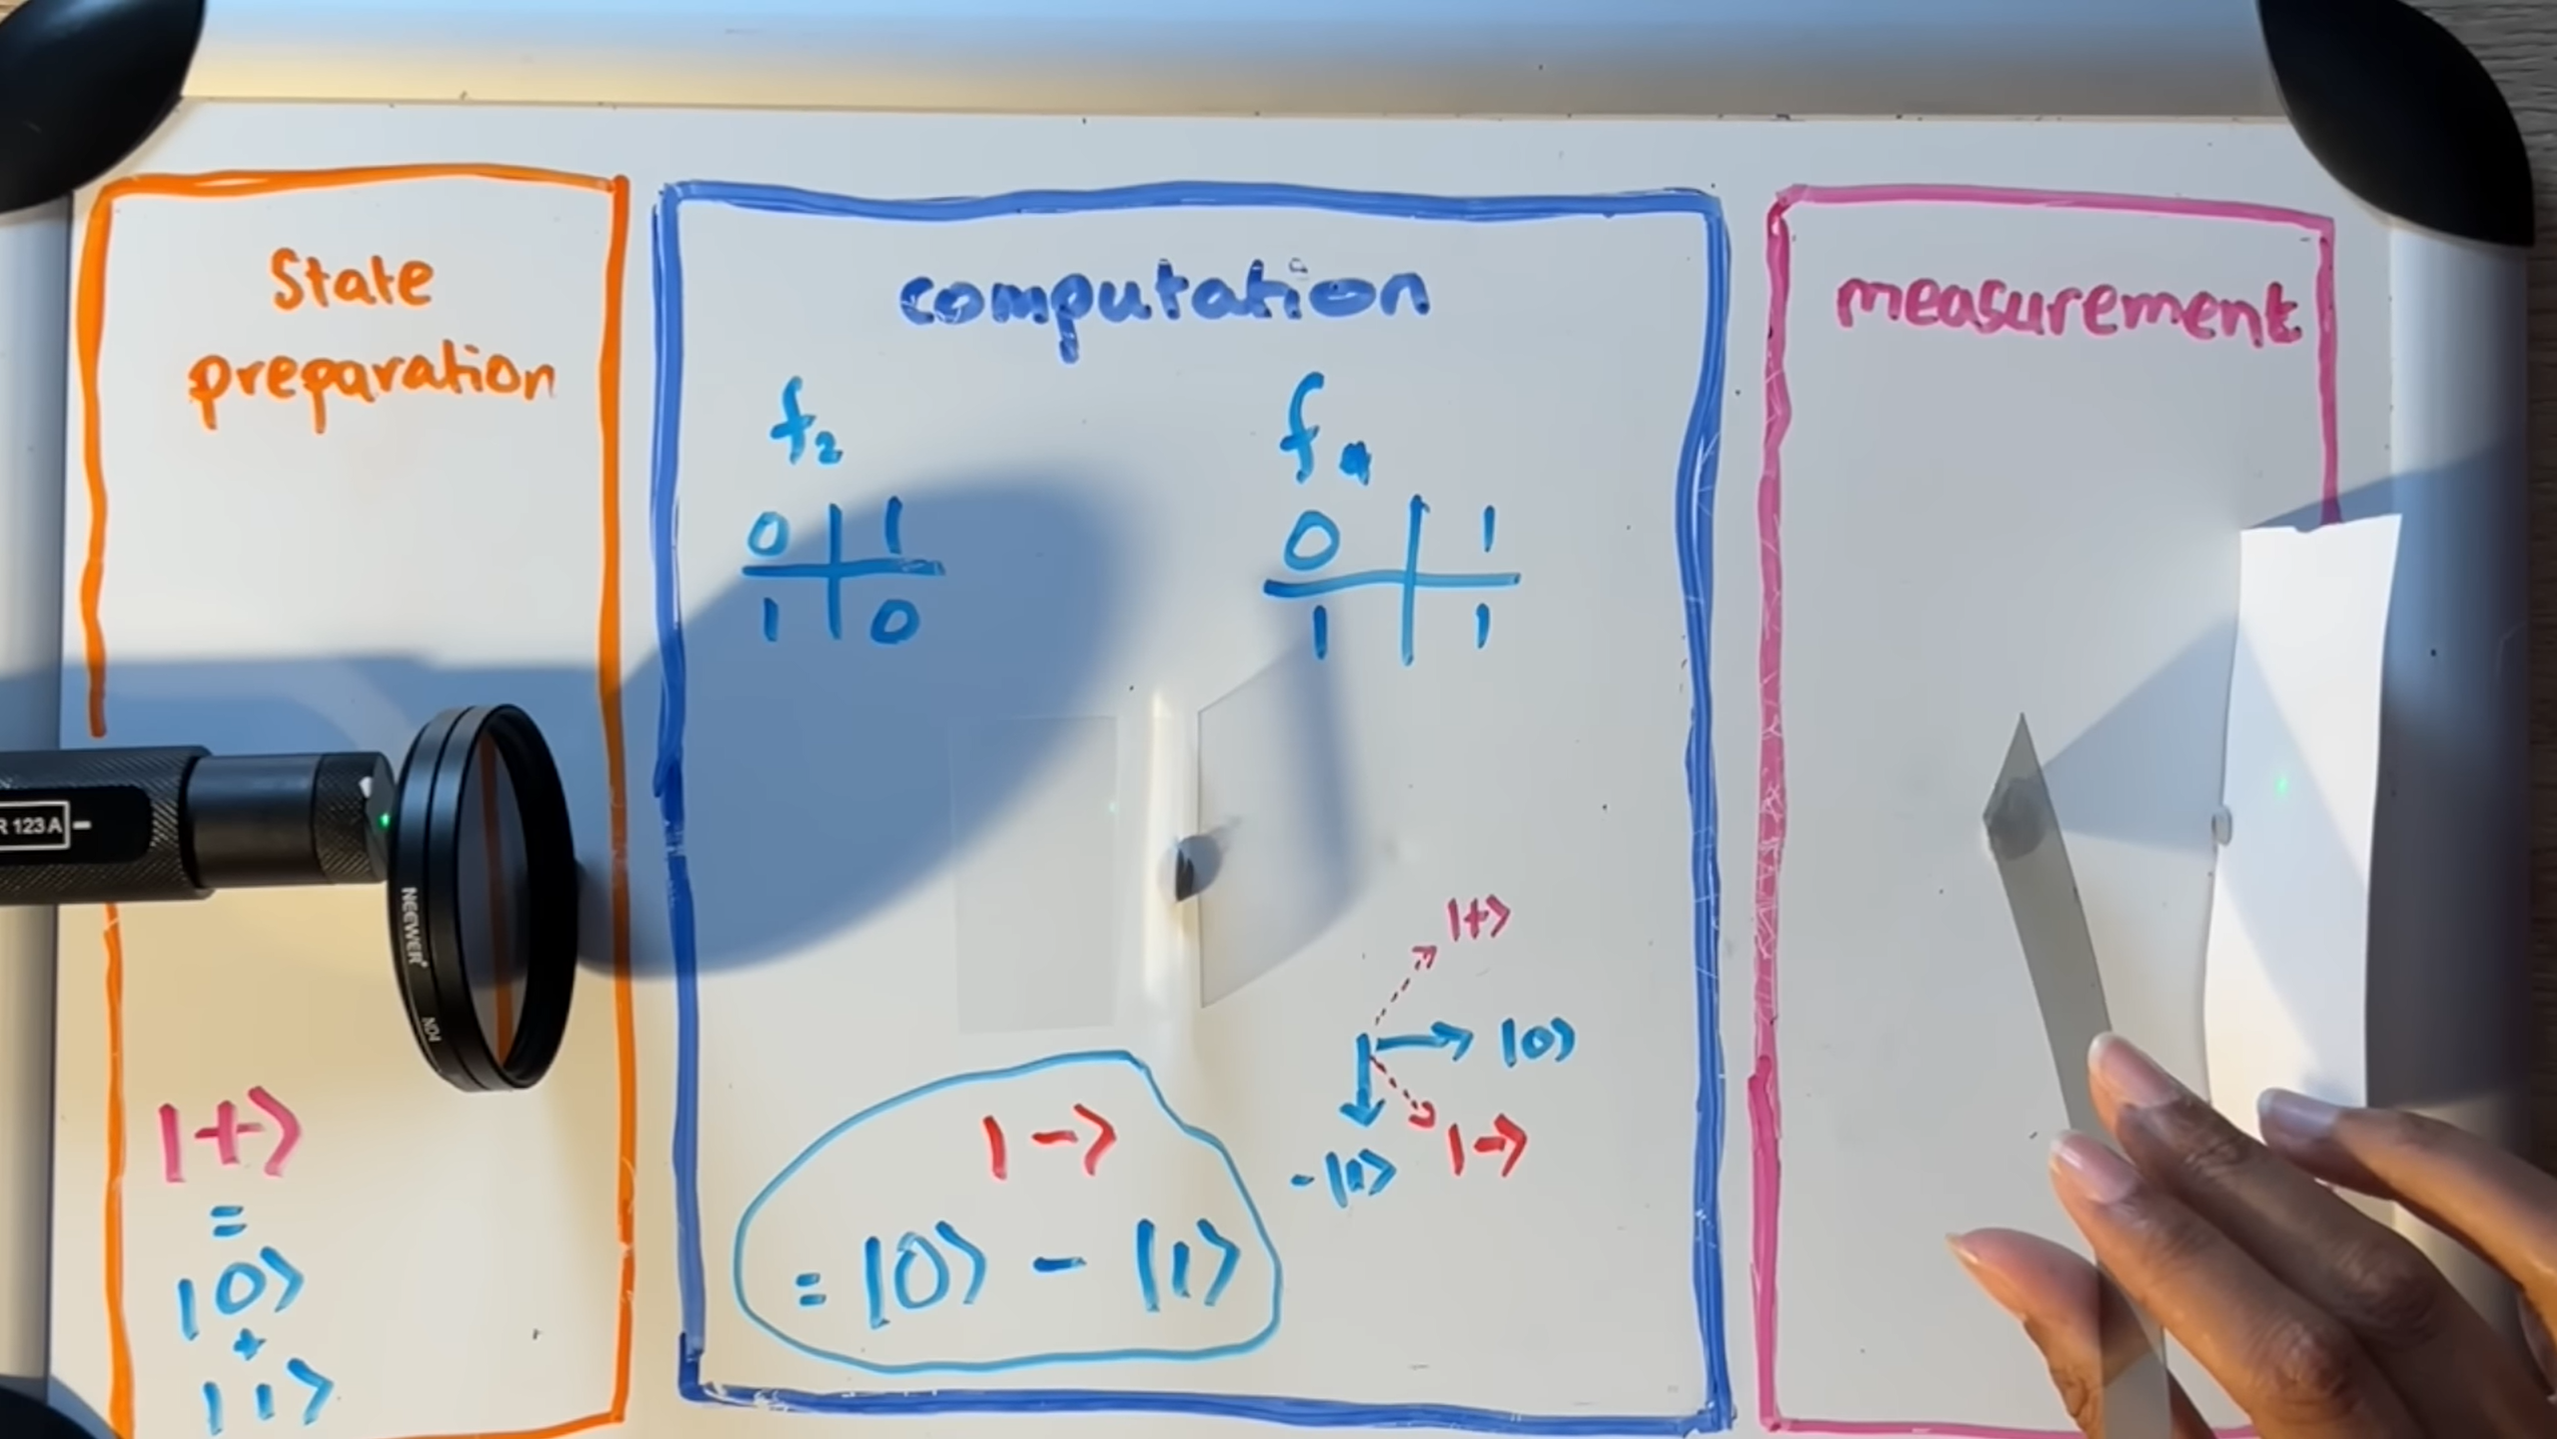 State
preparation
R 123A
NEEWER®
ND4
|+⟩
=
|0⟩
+
|1⟩
computation
f₂
0 | 1
1 | 0
f₄
0 | 1
1 | 1
|+⟩
|0⟩
|-⟩
-|1⟩
|-⟩
= |0⟩ - |1⟩
measurement